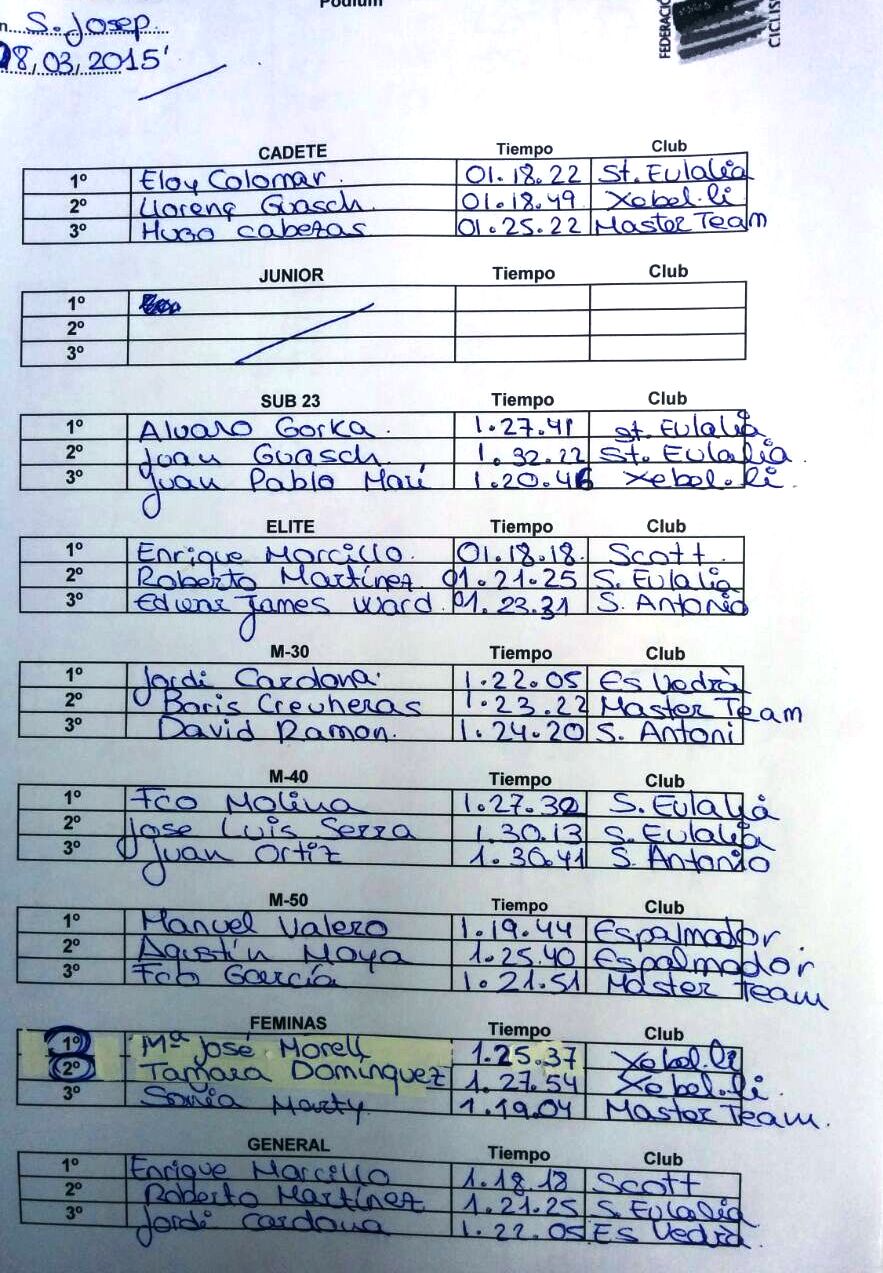 Podium
n S. Josep
08,03,2015'
FEDERACIÓ
CICLIS
CADETE Tiempo Club
1º Eloy Colomar. 01.18.22 St. Eulalia
2º Llorenç Guasch. 01.18.49 Xebel.li
3º Hugo cabezas 01.25.22 Master Team
JUNIOR Tiempo Club
1º
2º
3º
SUB 23 Tiempo Club
1º Alvaro Gorka. 1.27.41 St. Eulalia
2º Joan Guasch. 1.32.22 St. Eulalia.
3º Juan Pablo Marí 1.20.46 Xebel.li.
ELITE Tiempo Club
1º Enrique Morcillo. 01.18.18. Scott.
2º Roberto Martínez 01.21.25 S. Eulalia
3º Edwar James Ward. 01.23.31 S. Antonio
M-30 Tiempo Club
1º Jordi Cardona. 1.22.05 Es Vedrà
2º Boris Creuheras 1.23.22 Master Team
3º David Ramon. 1.24.20 S. Antoni
M-40 Tiempo Club
1º Fco Molina 1.27.32 S. Eulalia
2º Jose Luis Serra 1.30.13 S. Eulalia
3º Juan Ortiz 1.30.41 S. Antonio
M-50 Tiempo Club
1º Manuel Valero 1.19.44 Espalmador
2º Agustín Moya 1.25.40 Espalmador
3º Fco García 1.21.51 Master Team
FEMINAS Tiempo Club
1º Mª José Morell 1.25.37 Xebel.li
2º Tamara Domínquez 1.27.54 Xebel.li.
3º Sonia Marty. 1.19.04 Master Team.
GENERAL Tiempo Club
1º Enrique Marcillo 1.18.18 Scott
2º Roberto Martínez 1.21.25 S. Eulalia
3º Jordi Cardona 1.22.05 Es Vedrà.